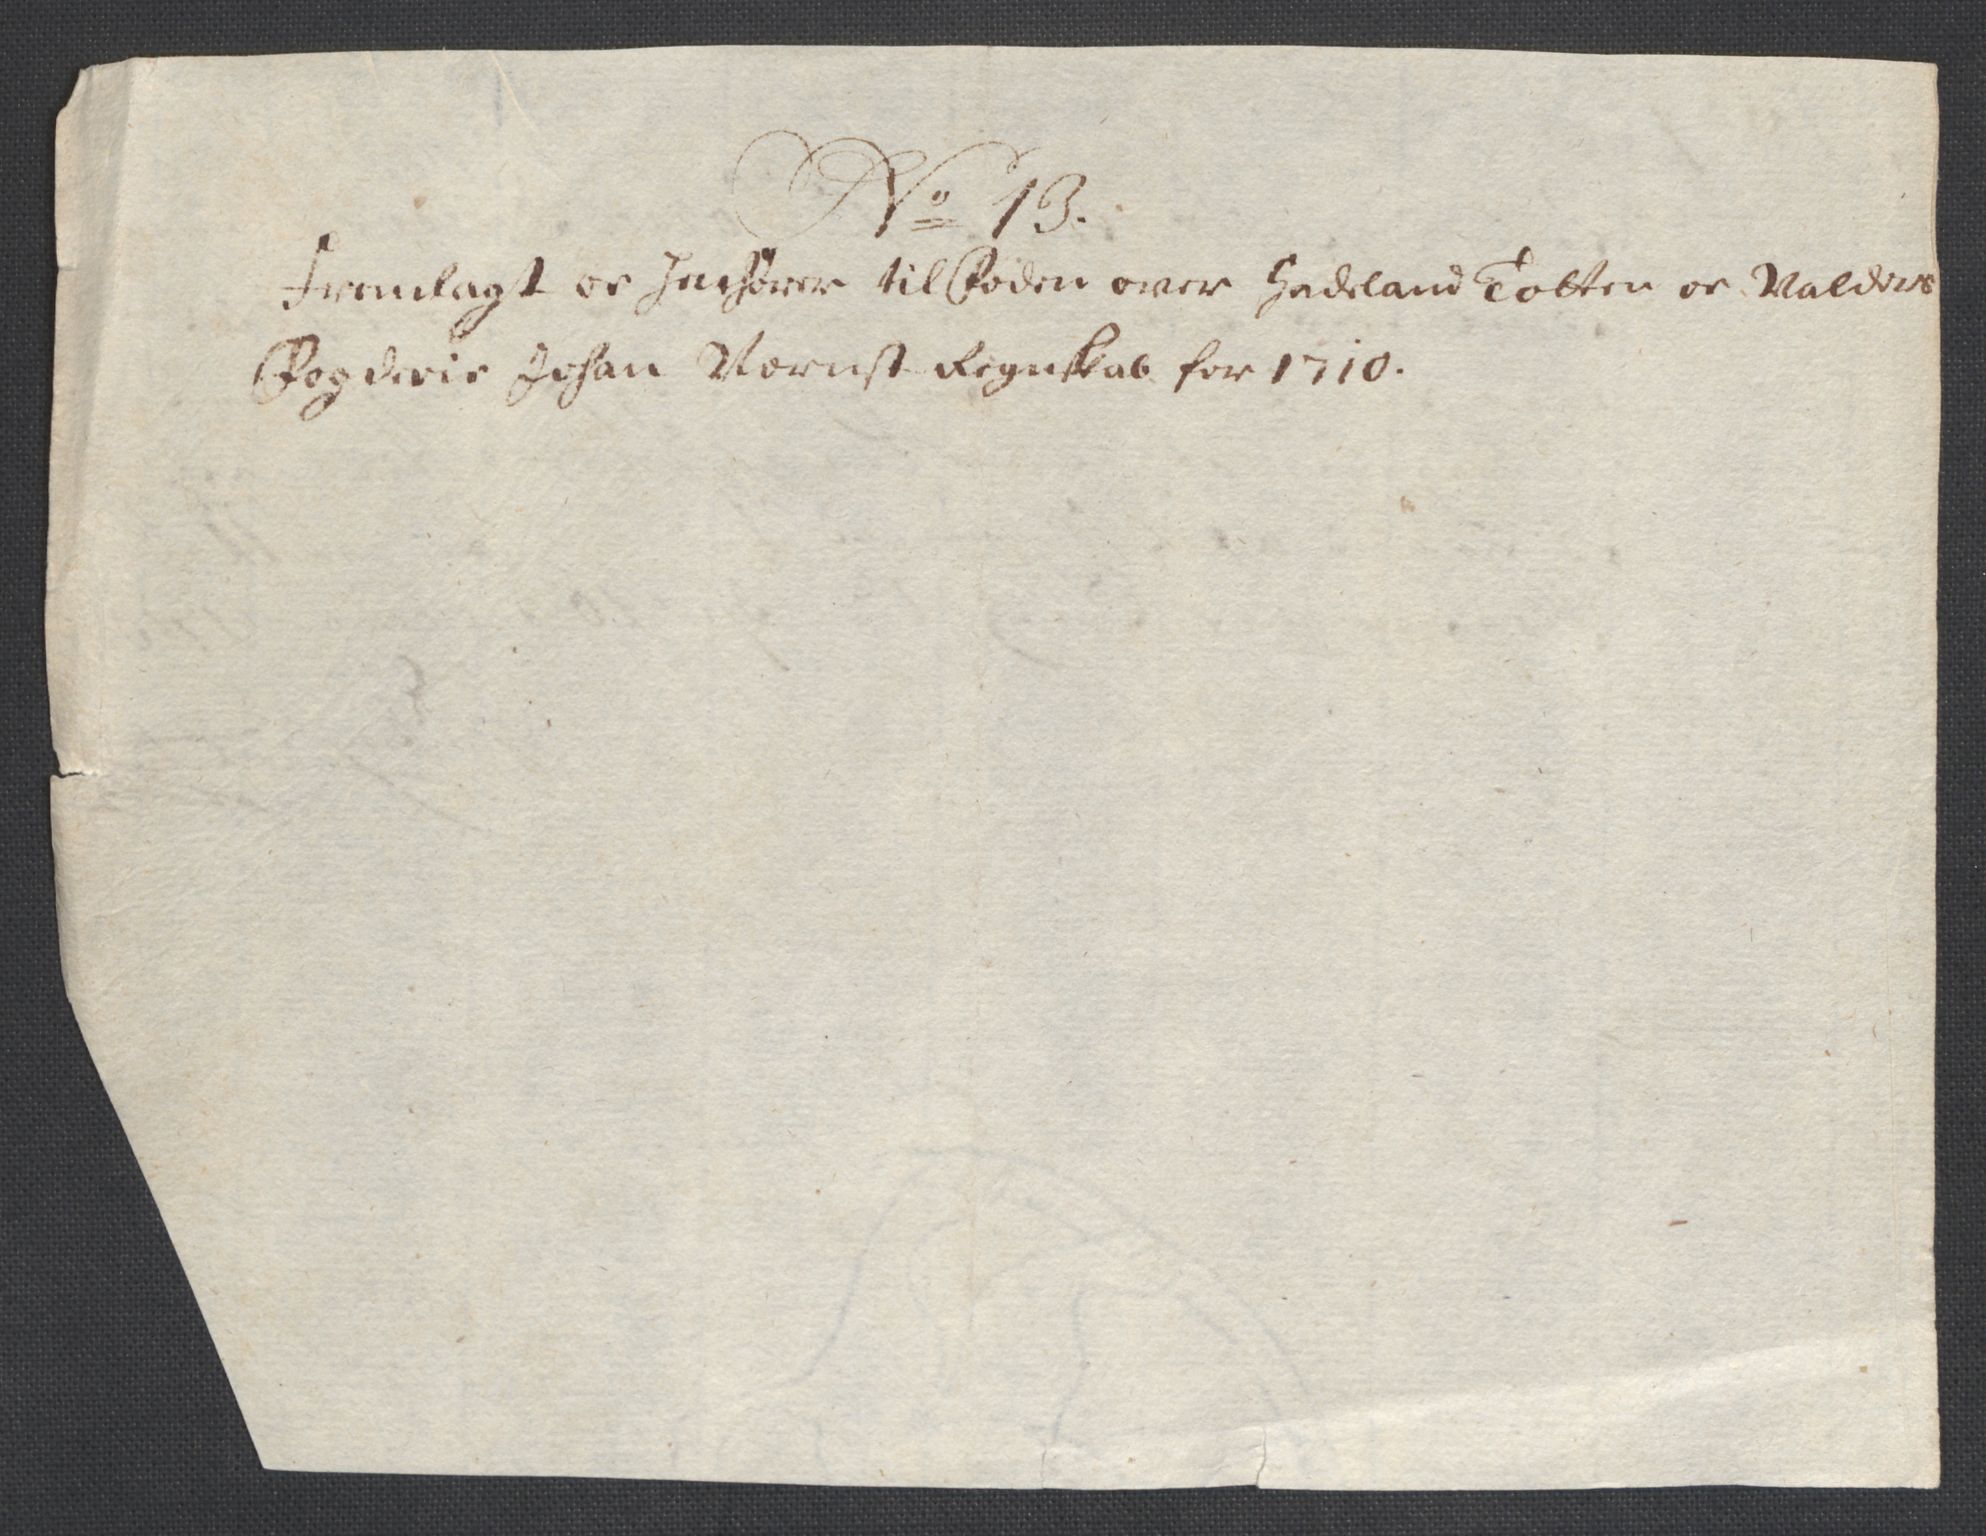 No 13.
Fremlagt oc henhører til Foden over Hadeland Totten oc Valders
Fogderie Johan Wernst Regnskab for 1710.